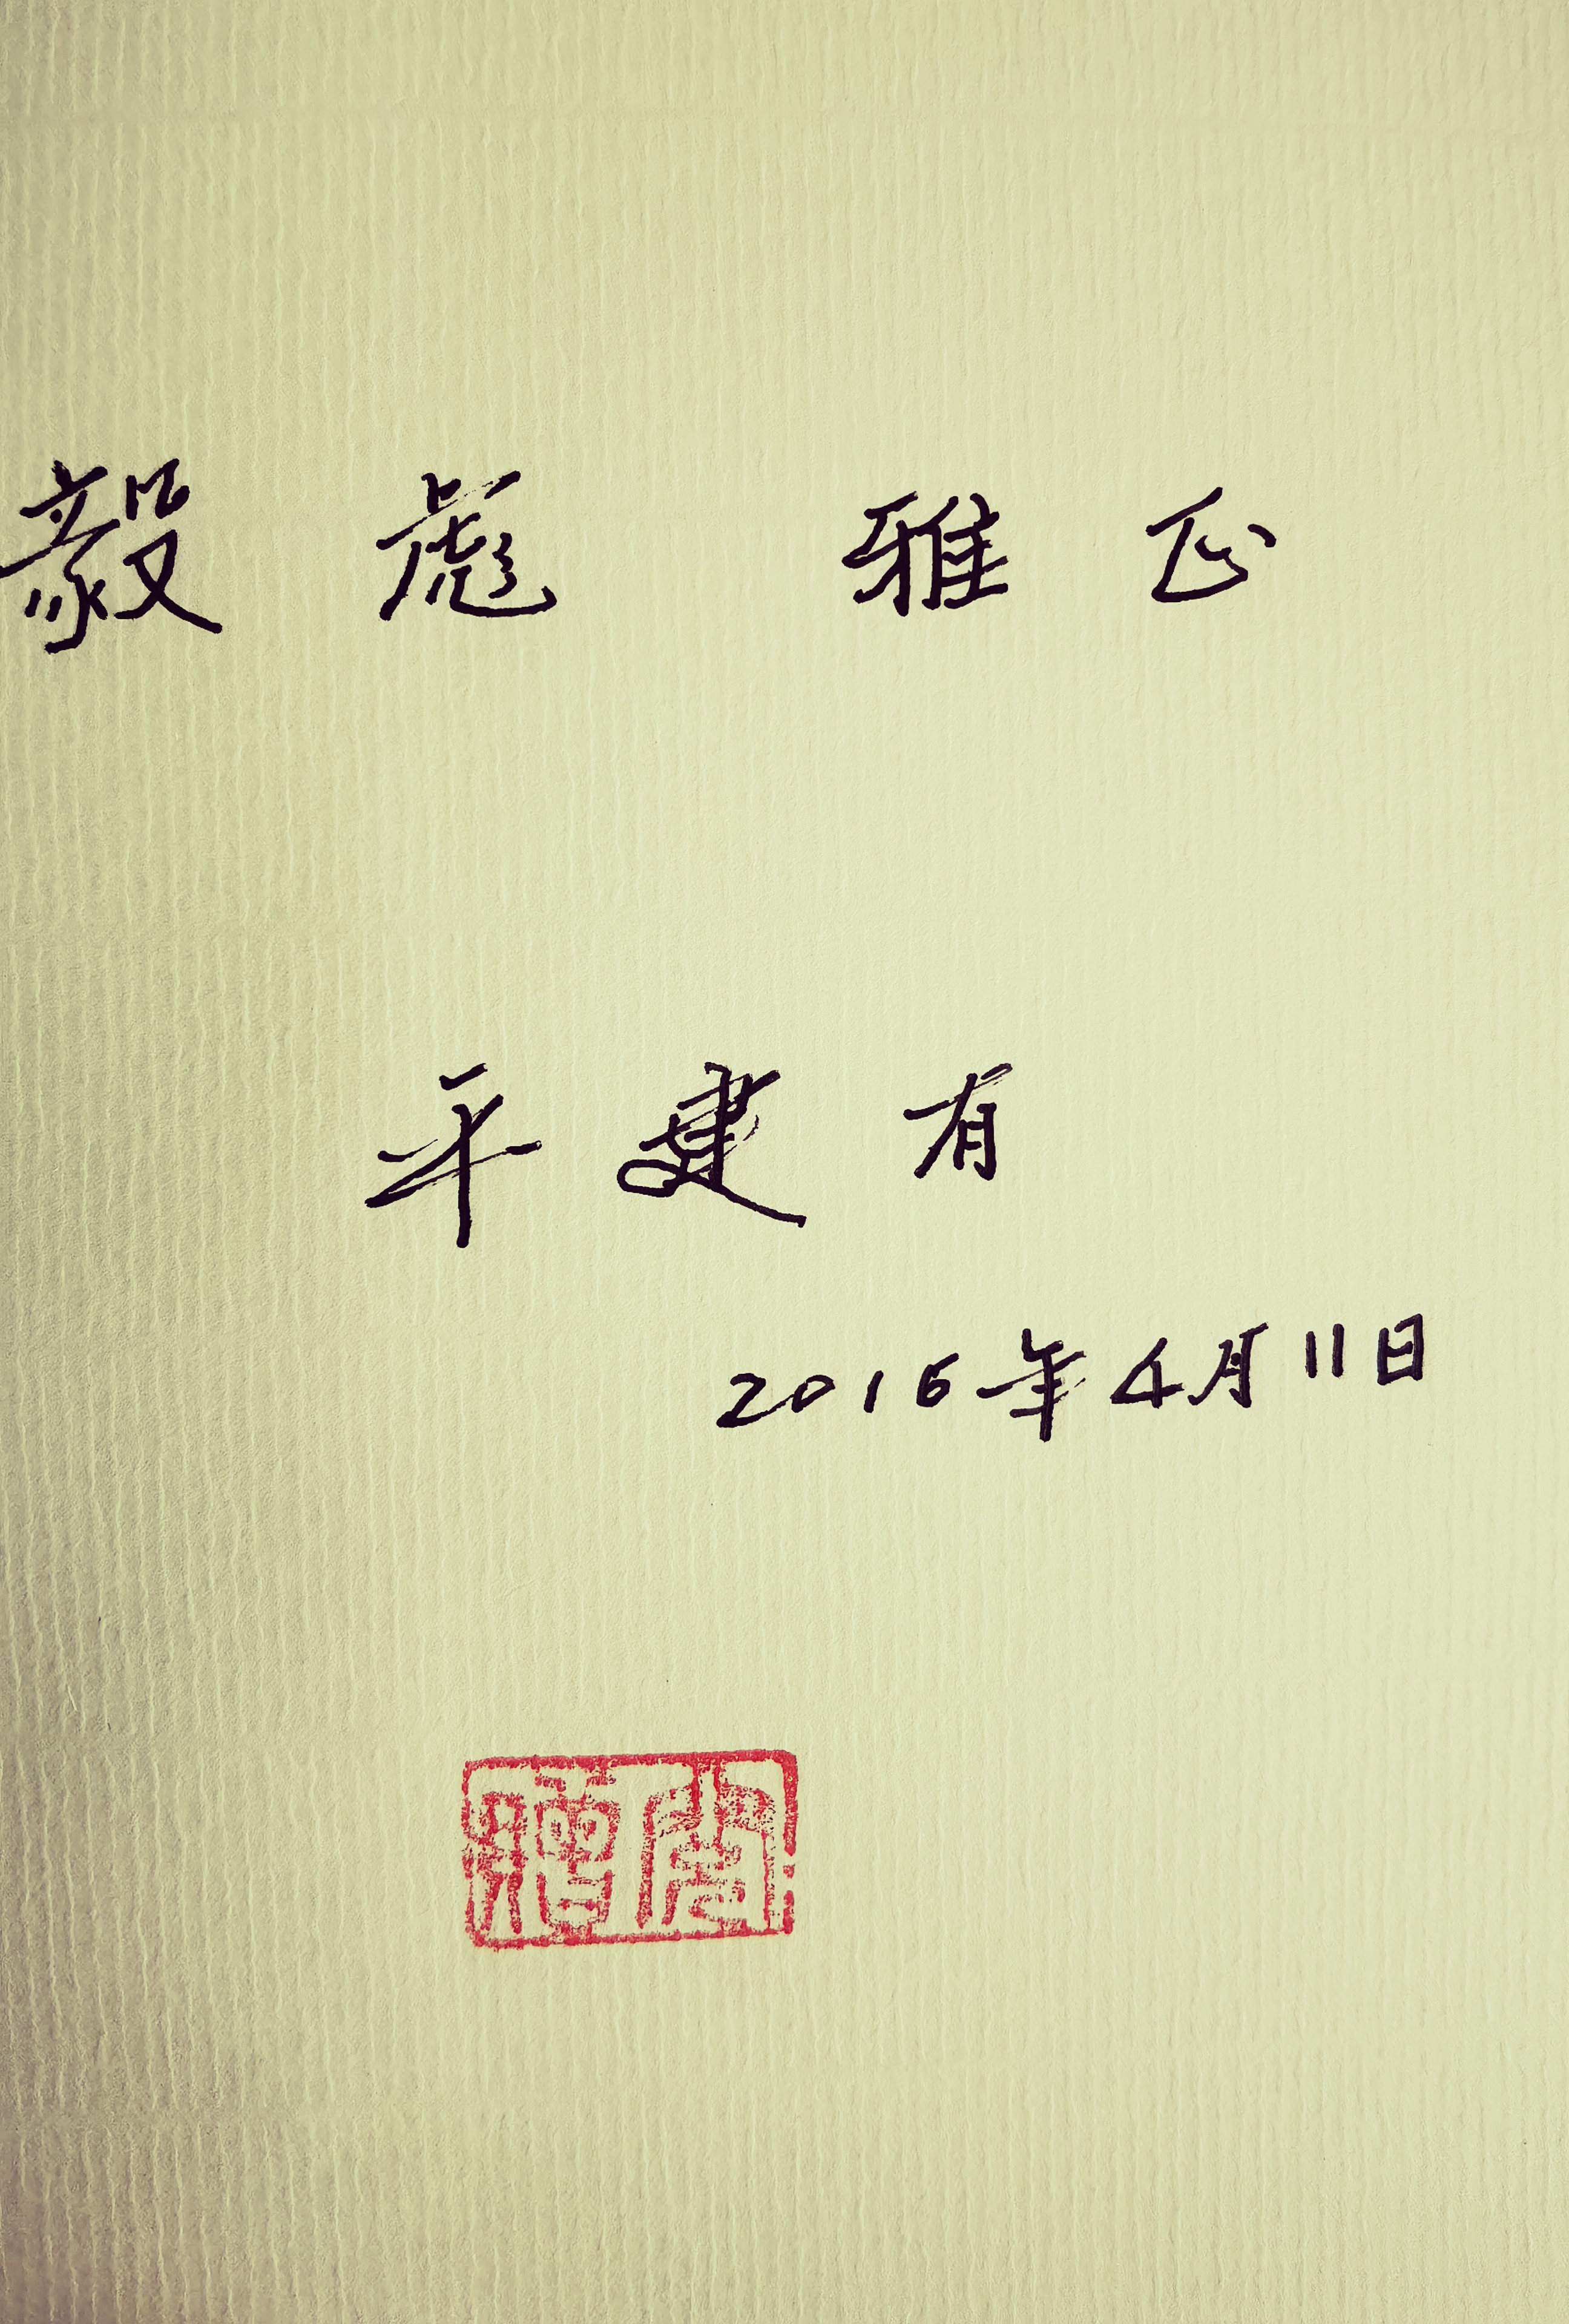 毅彪 雅正
平建有
2016年4月11日